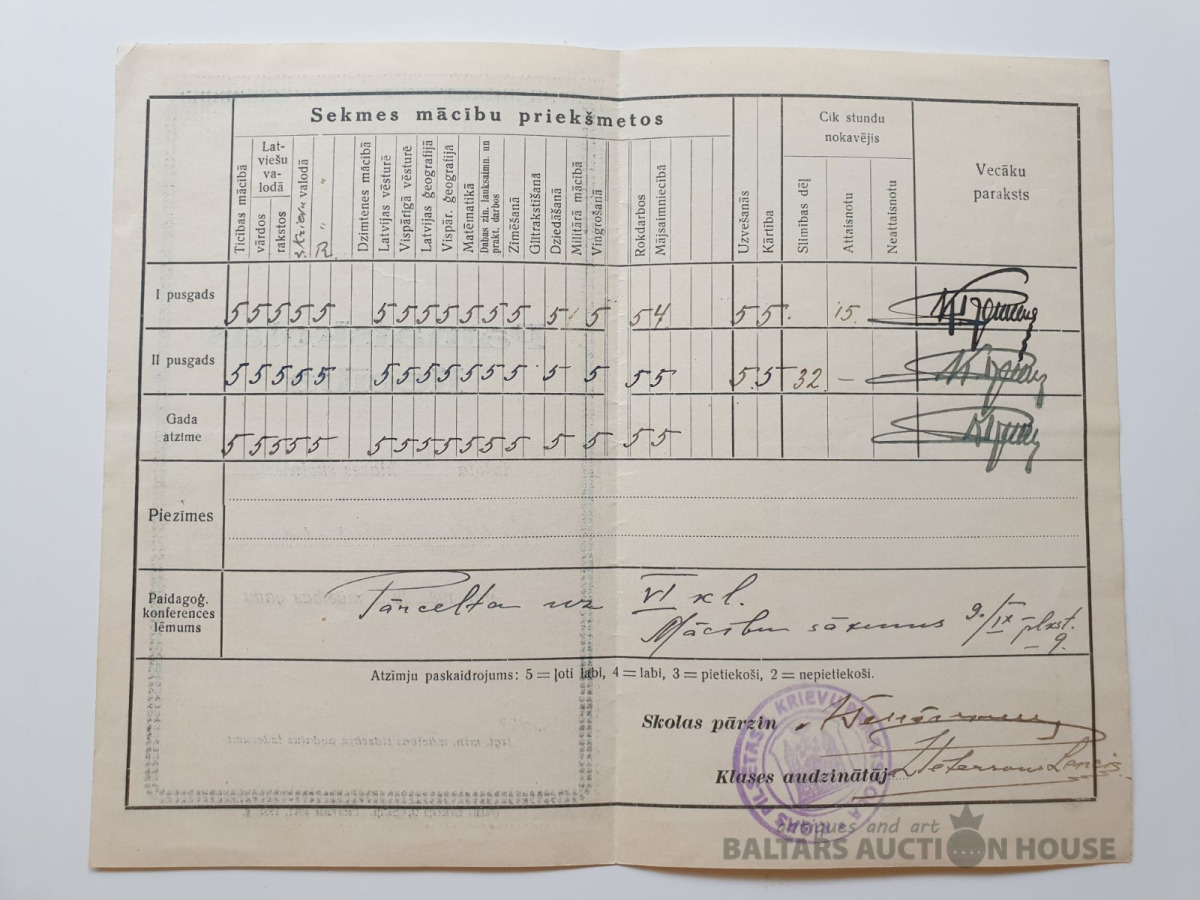 Sekmes mācību priekšmetos
Cik stundu
nokavējis
Vecāku
paraksts
Ticības mācībā
Lat-
viešu
va-
lodā
vārdos
rakstos
valodā
" "
Dzimtenes mācībā
Latvijas vēsturē
Vispārīgā vēsturē
Latvijas ģeografijā
Vispār. ģeografijā
Matēmatikā
Dabas zin. lauksaimn. un
prakt. darbos
Zīmēšanā
Glītrakstīšanā
Dziedāšanā
Militārā mācībā
Vingrošanā
Rokdarbos
Mājsaimniecībā
Uzvešanās
Kārtība
Slimības dēļ
Attaisnotu
Neattaisnotu
I pusgads 5 5 5 5 5 5 5 5 5 5 5 5 5 5 5 4 5 5 15
II pusgads 5 5 5 5 5 5 5 5 5 5 5 5 5 5 5 5 5 5 32 –
Gada
atzīme 5 5 5 5 5 5 5 5 5 5 5 5 5 5 5 5
Piezīmes
Paidagoģ.
konferences
lēmums
Pārcelta uz VI kl.
Mācību sākums 9./IX plkst.
– 9.
Atzīmju paskaidrojums: 5 = ļoti labi, 4 = labi, 3 = pietiekoši, 2 = nepietiekoši.
Skolas pārzin
Klases audzinātāj
antiques and art
BALTARS AUCTION HOUSE